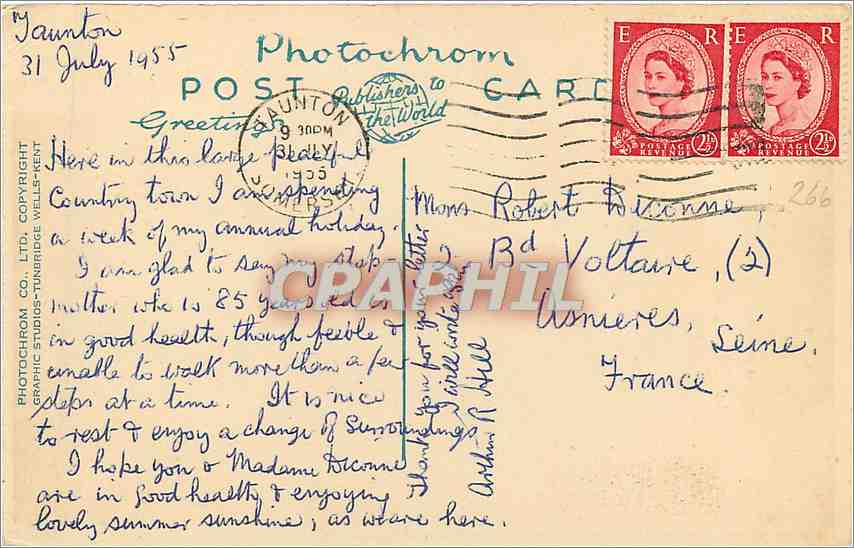 Taunton
31 July 1955
Photochrom
POST CARD
Publishers to
the World
Greetings
TAUNTON
9 30PM
31 JLY
1955
SOMERSET
E R
POSTAGE
REVENUE
2½D
E R
POSTAGE
REVENUE
2½D
266
PHOTOCHROM CO., LTD. COPYRIGHT
GRAPHIC STUDIOS-TUNBRIDGE WELLS-KENT
Here in this large peaceful
Country town I am spending
a week of my annual holiday.
I am glad to say my step-
mother who is 85 years old is
in good health, though feeble &
unable to walk more than a few
steps at a time. It is nice
to rest & enjoy a change of Surroundings
I hope you & Madame Diconne
are in good health & enjoying
lovely summer sunshine, as we are here.
Thank you for your letter
I will write again
Arthur R Hill
Mons Robert Diconne,
Bd Voltaire, (2)
Asnières,
Seine.
France.
CPAPHIL